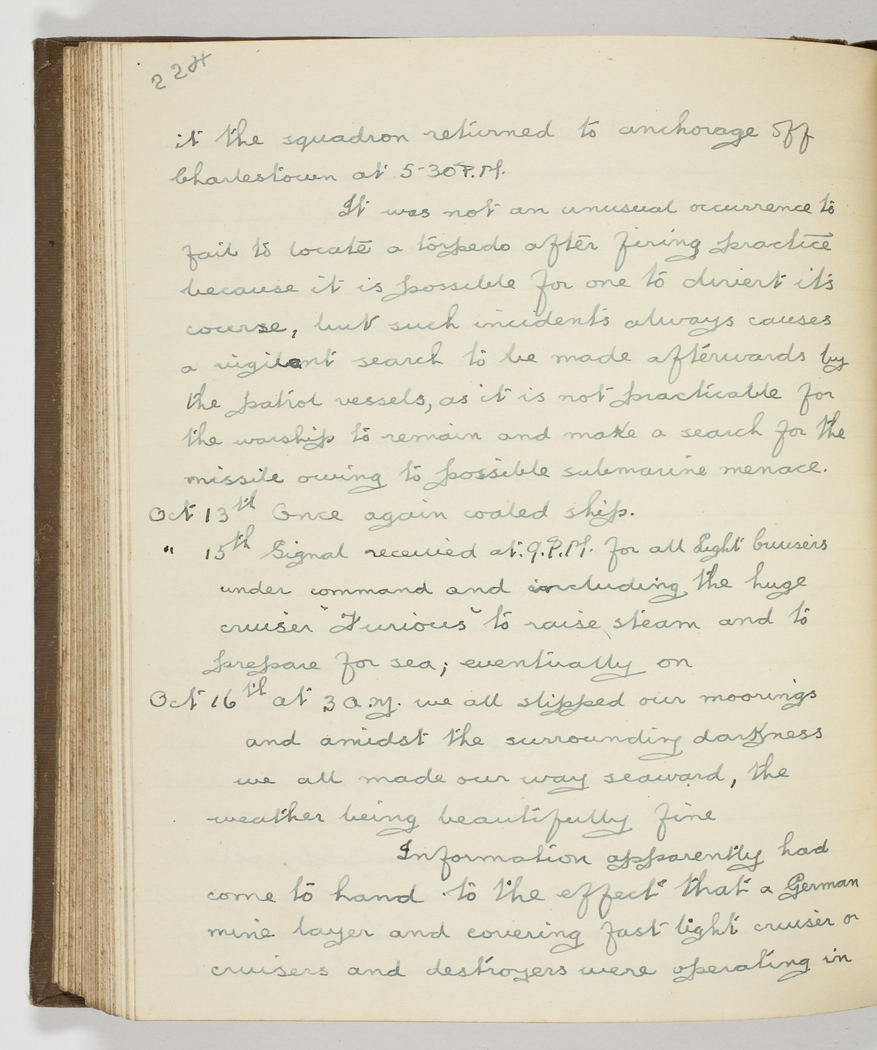 224
it the squadron returned to anchorage off
Charlestown at 5-30 P.M.
It was not an unusual occurrence to
fail to locate a torpedo after firing practice
because it is possible for one to divert its
course, but such incidents always causes
a vigilant search to be made afterwards by
the patrol vessels, as it is not practicable for
the warship to remain and make a search for the
missile owing to possible submarine menace.
Oct 13th Once again coaled ship.
" 15th Signal received at. 9. P.M. for all Light Cruisers
under command and including the huge
cruiser "Furious" to raise steam and to
prepare for sea; eventually on
Oct 16th at 3 a.m. we all slipped our moorings
and amidst the surrounding darkness
we all made our way seaward, the
weather being beautifully fine
Information apparently had
come to hand to the effect that a German
mine layer and covering fast light cruiser or
cruisers and destroyers were operating in